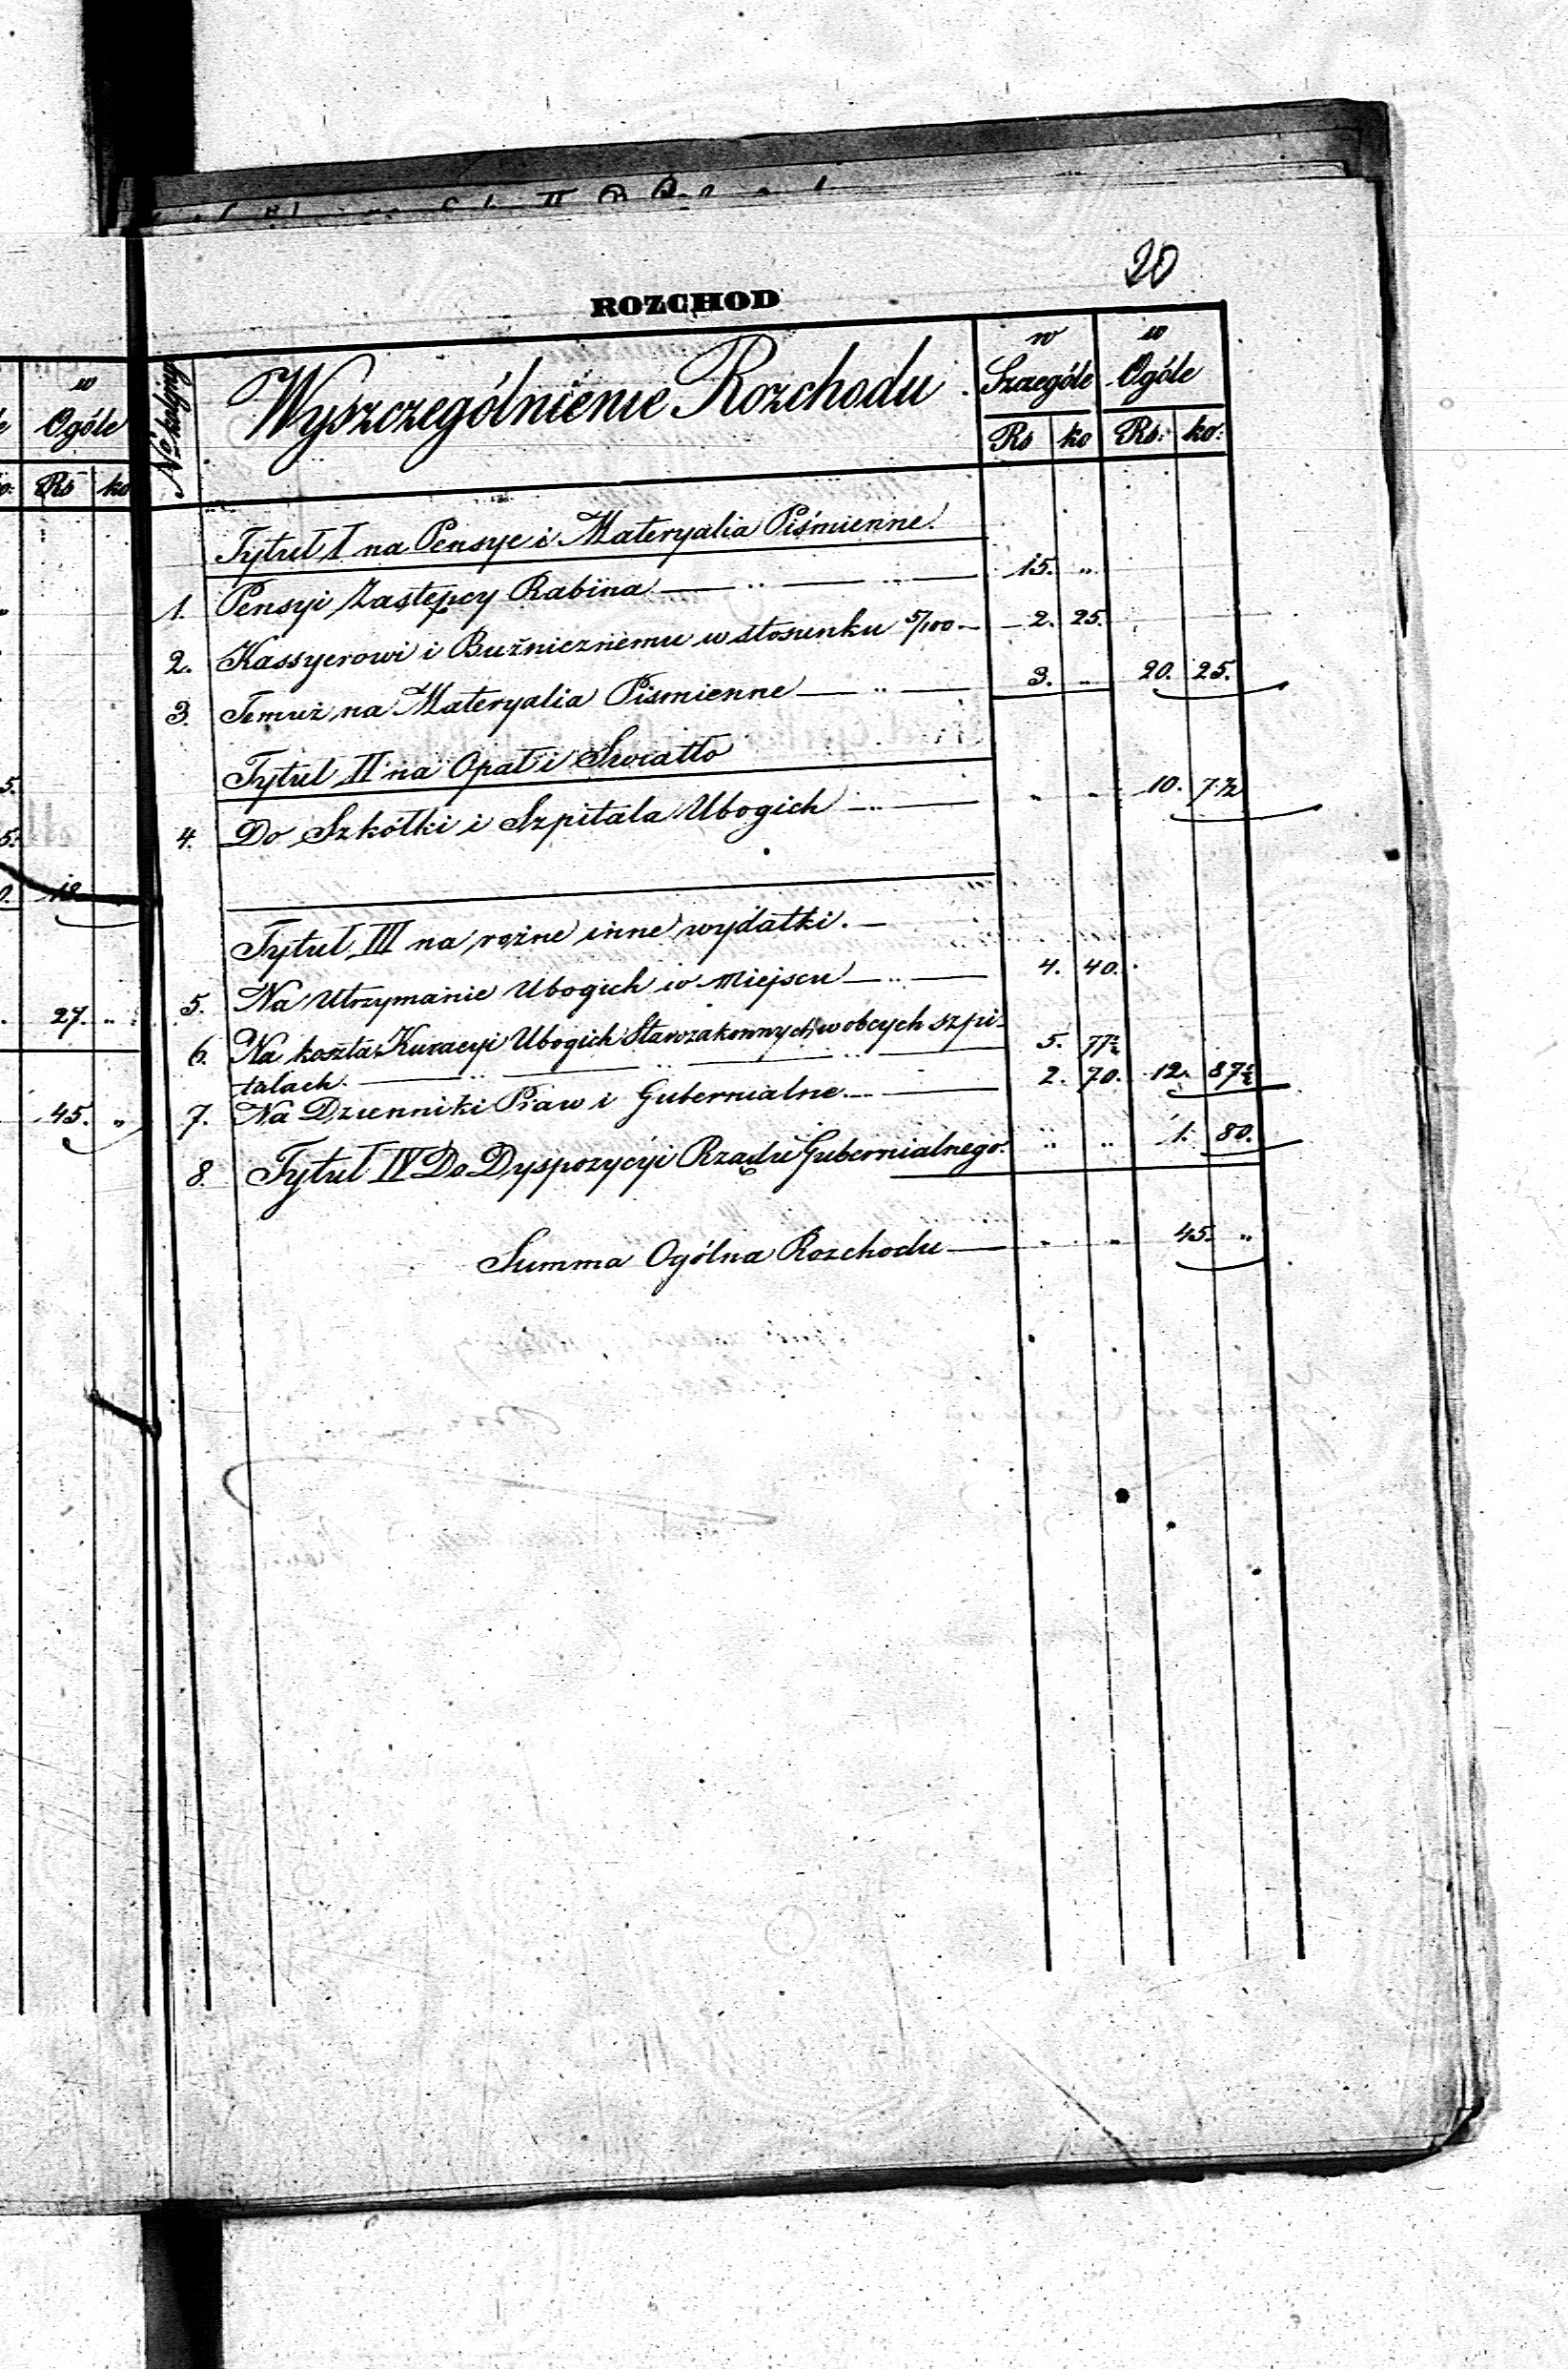 20
ROZCHOD
No kolejny Wyszczególnienie Rozchodu w Szczególe w Ogóle
Rs ko Rs: ko:
Tytuł I na Pensye i Materyalia Piśmienne.
1. Pensyi Zastępcy Rabina — „ — „ — 15. „
2. Kassyerowi i Buźnicznemu w stosunku 5/100 — 2. 25.
3. Temuż na Materyalia Piśmienne — „ — 3. „ 20. 25.
Tytuł II na Opał i Swiatło
4. Do Szkółki i Szpitala Ubogich — „ — „ „ 10. 7 1/2
Tytuł III na rożne inne wydatki. —
5. Na Utrzymanie Ubogich w Miejscu — „ — 4. 40.
6. Na koszta Kuracyi Ubogich Starozakonnych w obcych szpi-
talach. — „ — „ — „ — 5. 77 1/2
7. Na Dzienniki Praw i Gubernialne — „ — 2. 70. 12. 87 1/2
8. Tytuł IV Do Dyspozycyi Rządu Gubernialnego. „ „ 1. 80.
Summa Ogólna Rozchodu — „ „ 45. „
w
Ogóle
Rs ko
18
27. „
45. „